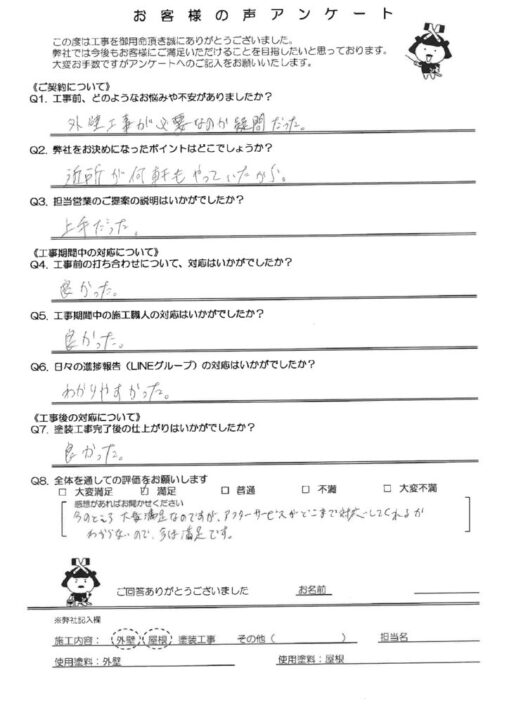 お客様の声アンケート
この度は工事を御用命頂き誠にありがとうございました。
弊社では今後もお客様にご満足いただけることを目指したいと思っております。
大変お手数ですがアンケートへのご記入をお願いいたします。
《ご契約について》
Q1. 工事前、どのようなお悩みや不安がありましたか？
外壁工事が必要なのか疑問だった。
Q2. 弊社をお決めになったポイントはどこでしょうか？
近所が何軒もやっていたから。
Q3. 担当営業のご提案の説明はいかがでしたか？
上手だった。
【工事期間中の対応について】
Q4. 工事前の打ち合わせについて、対応はいかがでしたか？
良かった。
Q5. 工事期間中の施工職人の対応はいかがでしたか？
良かった。
Q6. 日々の進捗報告（LINEグループ）の対応はいかがでしたか？
わかりやすかった。
【工事後の対応について】
Q7. 塗装工事完了後の仕上がりはいかがでしたか？
良かった。
Q8. 全体を通しての評価をお願いします
□ 大変満足 ☑ 満足 □ 普通 □ 不満 □ 大変不満
感想があればお聞かせください
今のところ大変満足なのですが、アフターサービスがどこまで対応してくれるか
わからないので、今は満足です。
ご回答ありがとうございました お名前
※弊社記入欄
施工内容：外壁 屋根 塗装工事 その他（ ） 担当名
使用塗料：外壁 使用塗料：屋根